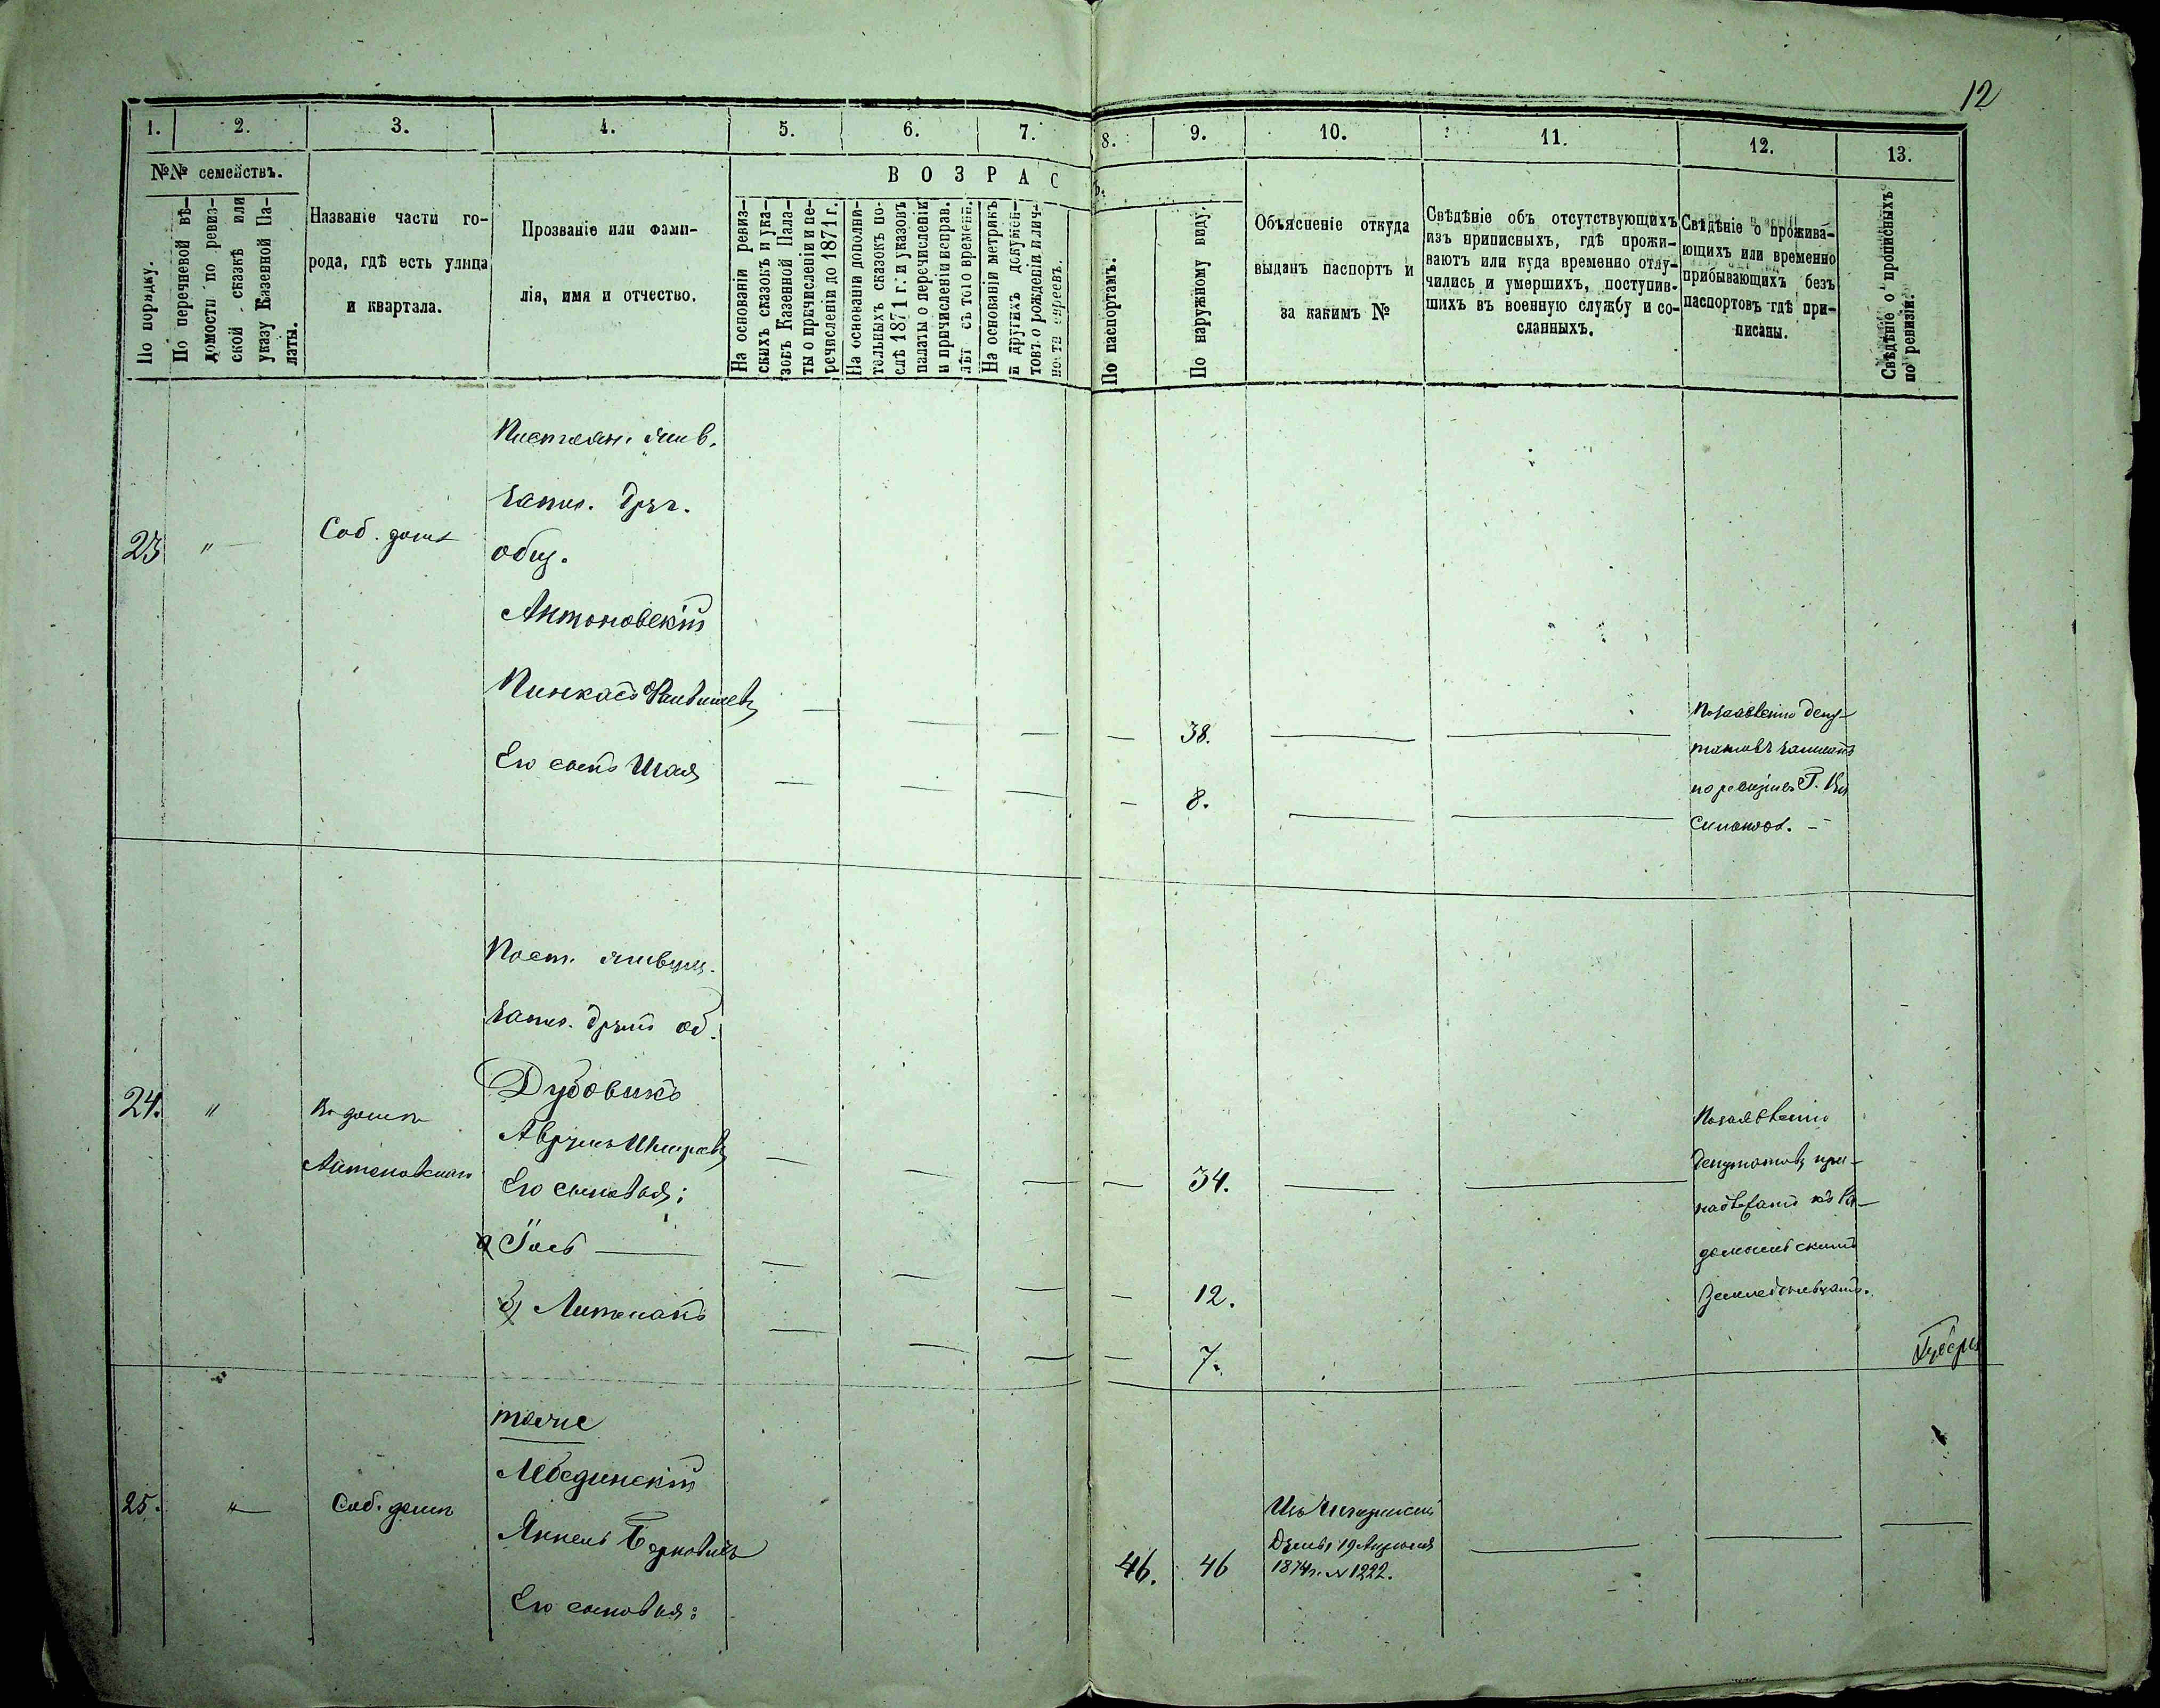 12
1. 2. 3. 4. 5. 6. 7. 8. 9. 10. 11. 12. 13.
№№ семействъ.
В О З Р А С Ъ.
По порядку.
По перечневой вѣ-
домости по ревиз-
ской сказкѣ или
указу Казенной Па-
латы.
Названіе части го-
рода, гдѣ есть улица
и квартала.
Прозваніе или фами-
лія, имя и отчество.
На основаніи ревиз-
скихъ сказокъ и ука-
зовъ Казенной Пала-
ты о причисленіи и пе-
речисленіи до 1871 г.
На основаніи дополни-
тельныхъ сказокъ по-
слѣ 1871 г. и указовъ
палаты о перечисленіи
и причисленіи исправ.
лѣт съ того времени.
На основаніи метрикъ
и другихъ докумен-
товъ о рожденіи и лич-
ности евреевъ.
По паспортамъ.
По наружному виду.
Объясненіе откуда
выданъ паспортъ и
за какимъ №
Свѣдѣніе объ отсутствующихъ
изъ приписныхъ, гдѣ прожи-
ваютъ или куда временно отлу-
чились и умершихъ, поступив-
шихъ въ военную службу и со-
сланныхъ.
Свѣдѣніе о прожива-
ющихъ или временно
прибывающихъ безъ
паспортовъ гдѣ при-
писаны.
Свѣдѣніе о прописныхъ
по ревизіи.
23 " Соб. домъ
общ.
Антоновскій
Пинкасъ
Его сынъ Шая
38.
8.
По заявленію депу-
татовъ
по ревизіи Г.
24. " Въ домѣ
Антоновскаго
Пост.
Дубовикъ
Аврумъ
Его сыновья:
а) Іось
б) Литманъ
34.
12.
7.
По заявленію
депутатовъ при-
надлежатъ къ Ра-
домысльскимъ
земледѣльцамъ.
25. " Соб. домъ
тоже
Лебединскій
Янкель Берковичъ
Его сыновья:
46. 46
Изъ Чигиринской
Думы 19 Апрѣля
1874 г. № 1222.